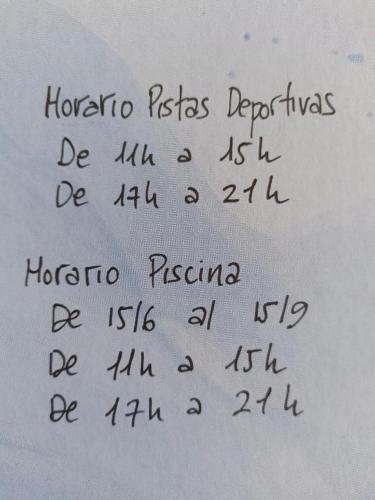 Horario Pistas Deportivas
De 11h a 15h
De 17h a 21h
Horario Piscina
De 15/6 al 15/9
De 11h a 15h
De 17h a 21h